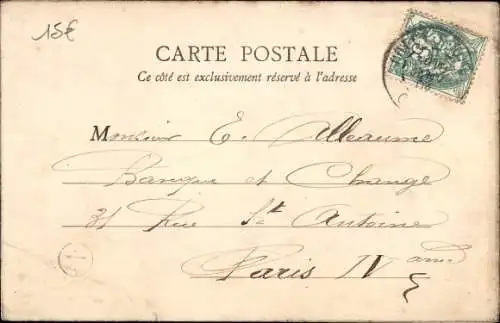 15€
CARTE POSTALE
Ce côté est exclusivement réservé à l'adresse
Monsieur E. Alleaume
Banque et Change
31 Rue St Antoine
Paris IV arrd